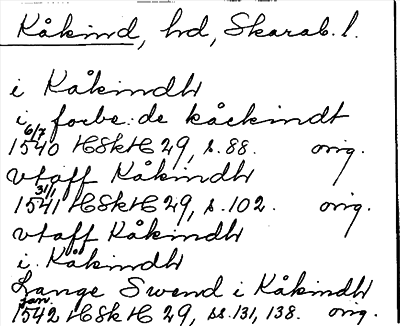 Kåkind, hd, Skarab. l.
i Kåkindh
i forbe:de kåckindt
1540 6/7 HSkH 29, s. 88. orig.
vtaff Kåkindh
1541 31/1 HSkH 29, s. 102. orig.
vtaff Kåkindh
i Kåkindh
Lange Swend i Kåkindh
1542 jan. HSkH 29, ss. 131, 138. orig.